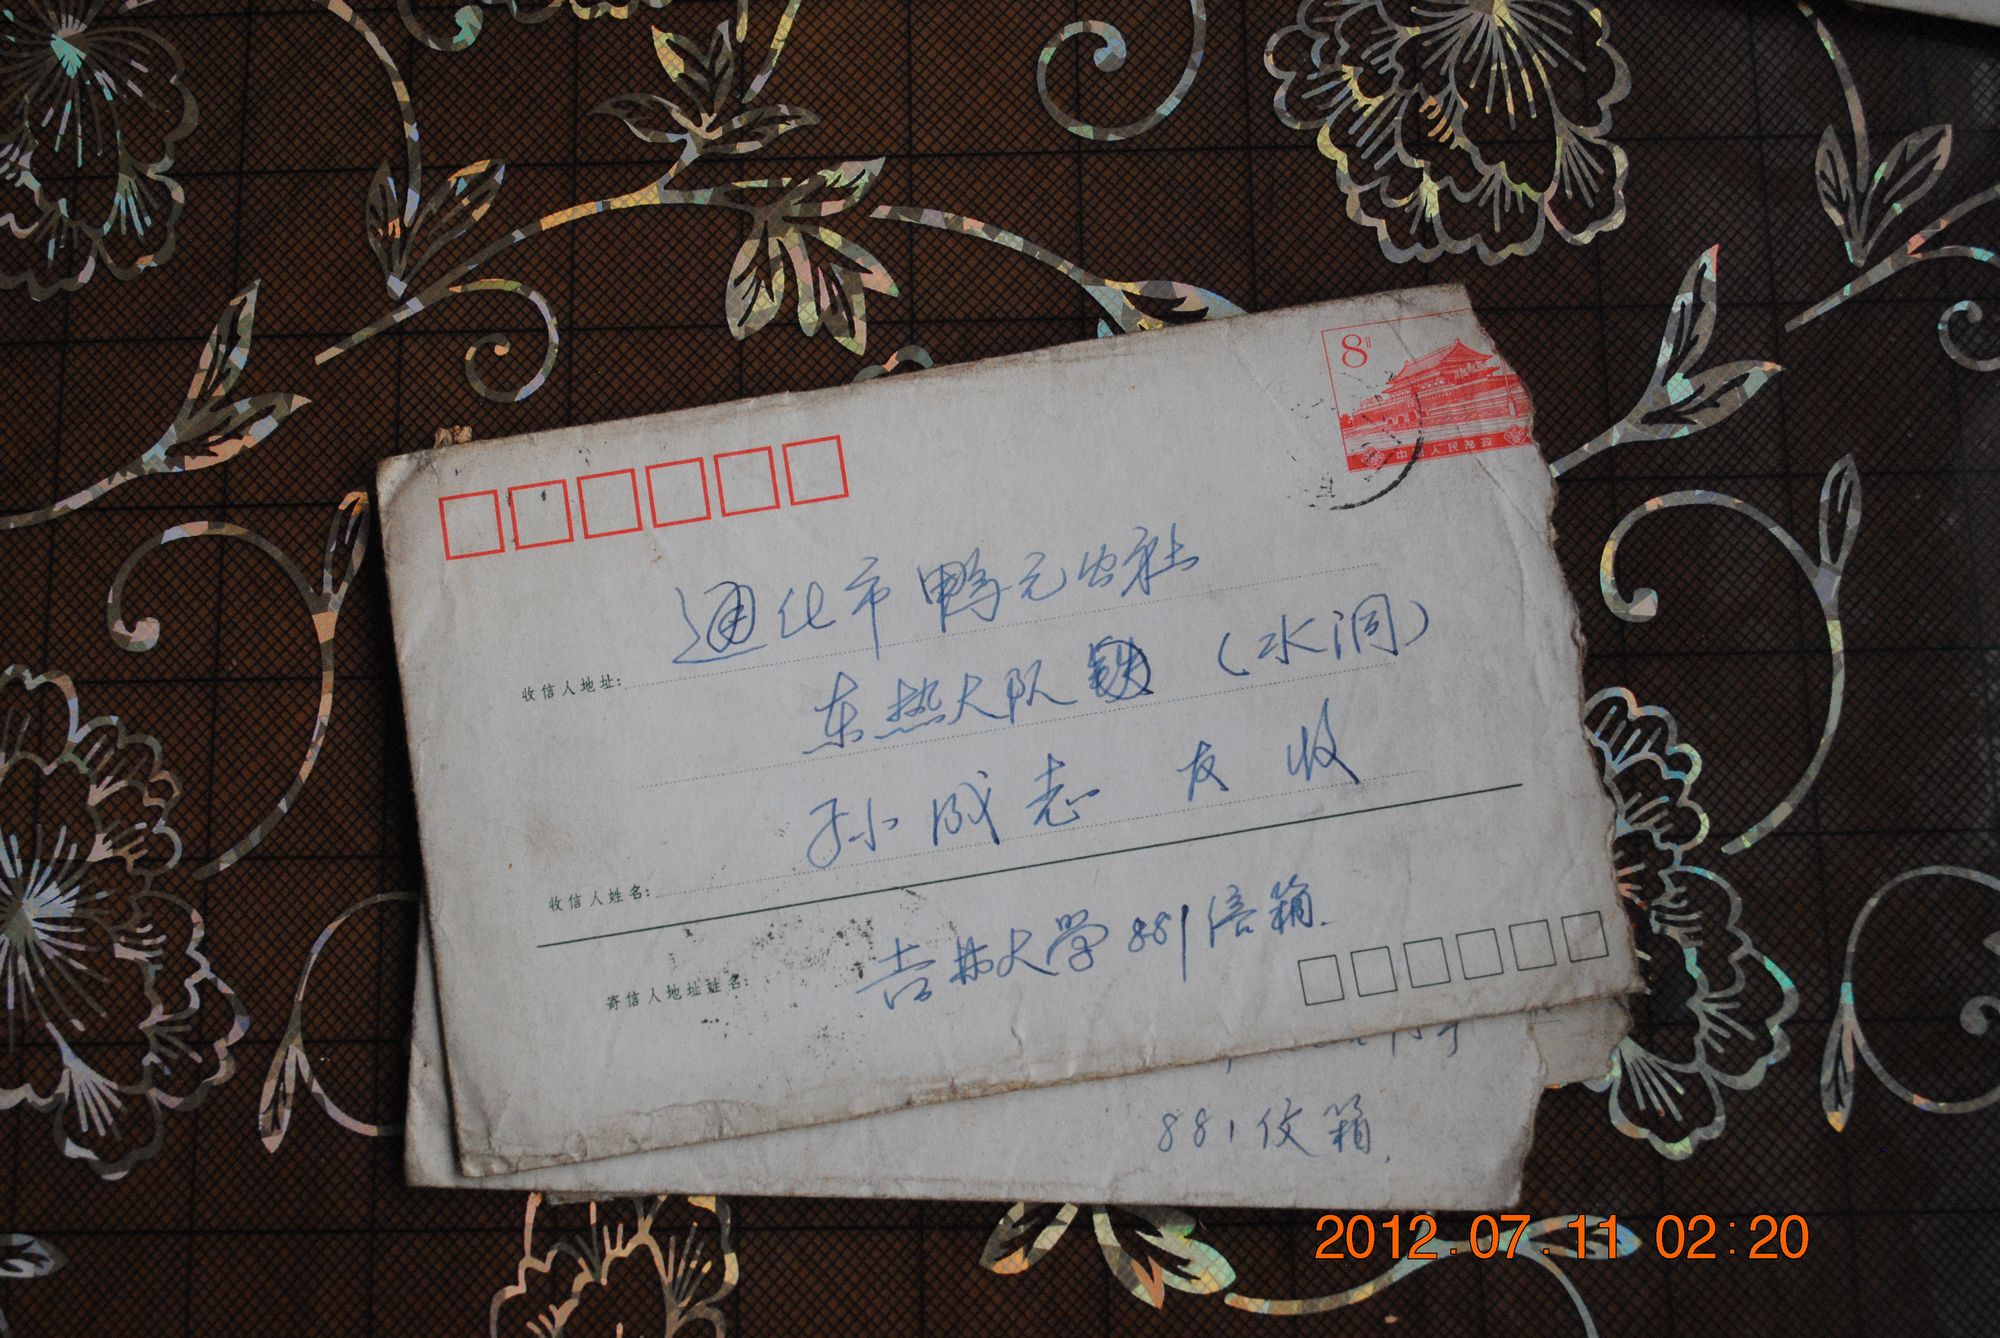 8分
中国人民邮政
通化市鸭元公社
收信人地址:
东热大队 (水洞)
孙成志 友 收
收信人姓名:
吉林大学881信箱.
寄信人地址姓名:
881信箱.
2012.07.11 02:20